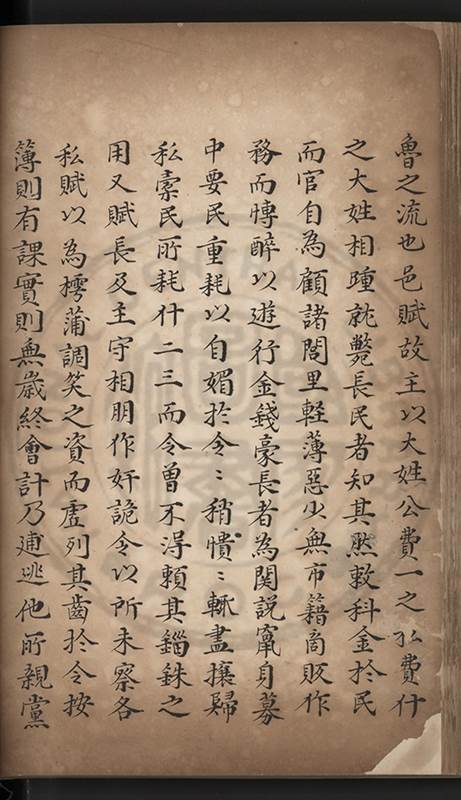 魯之流也邑賦故主以大姓公費一之私費什
之大姓相踵就斃長民者知其獘敕科金於民
而官自為顧諸閭里輕薄惡少無市籍商販作
務而慱醉以遊行金錢豪長者為関說竄身募
中要民重耗以自媚於令〻稍憒〻輒盡攘歸
私槖民所耗什二三而令曾不淂頼其錙銖之
用又賦長及主守相朋作奸詭令以所未察各
私賦以為樗蒲調笑之資而虛列其齒於令按
簿則有課實則無歲終會計乃逋逃他所親黨